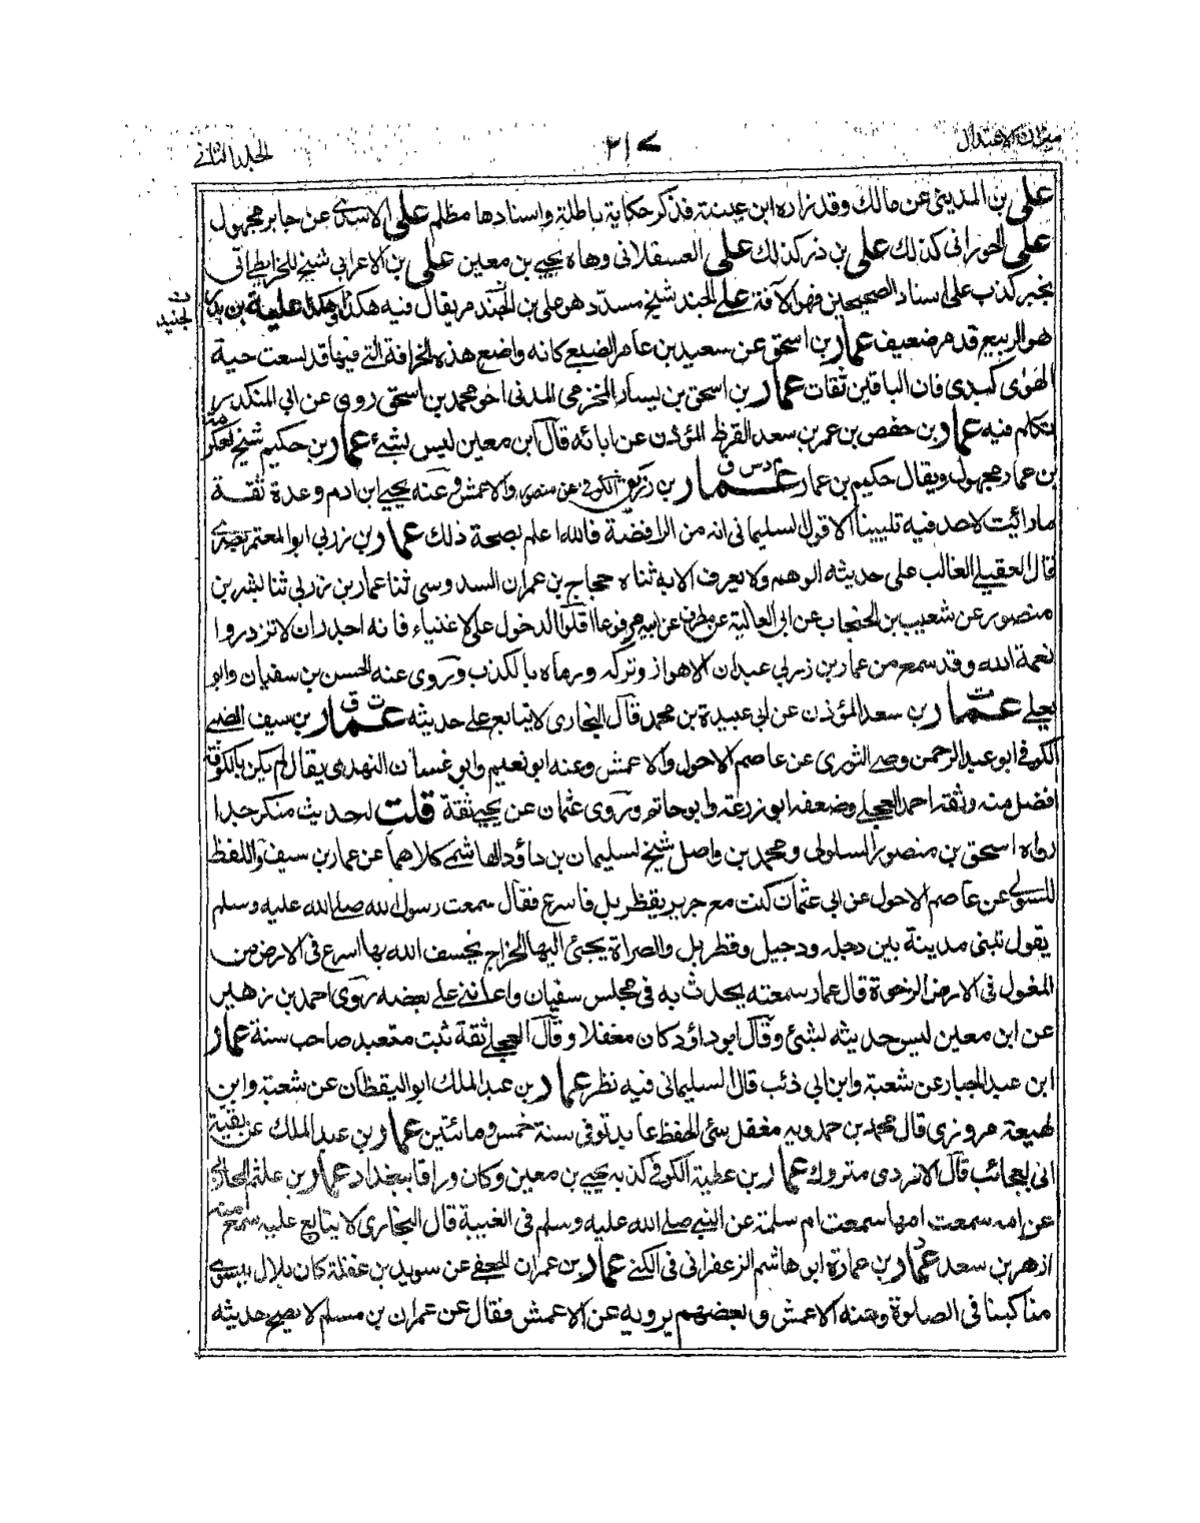 ميزان الاعتدال
٢١٧
الجلد الثاني
علي بن المديني عن مالك وقد زاره ابن عيينة فذكر حكاية باطلة واسنادها مظلم علي الاسدي عن جابر مجهول
علي الحوراني كذلك علي بن ذر كذلك علي العسقلاني وهاه يحيى بن معين علي بن الاعرابي شيخ للخرايطي اتى
بخبر كذب على اسناد الصحيحين فهو الآفة علي الجند شيخ مسدد هو علي بن الجند مر يقال فيه هكذا وهكذا عليلة بن بدر
جنيد
هو الربيع قد مر ضعيف عمار بن اسحق عن سعيد بن عامر الضبعي كانه واضع هذه الخرافة التي فيها قد لسعت حية
الهوى كبدي فان الباقين ثقات عمار بن اسحق بن يسار المخرمي المدني اخو محمد بن اسحق روى عن ابي المنكدر
يتكلم فيه عمار بن حفص بن عمر بن سعد القرظ المؤذن عن ابائه قال ابن معين ليس بشئ عمار بن حكيم شيخ لعكرمة
بن عمار مجهول ويقال حكيم بن عمار عمار بن رزيق الكوفي عن منصور والاعمش وعنه يحيى ابن ادم وعدة ثقة
ما رأيت لاحد فيه تليينا الا قول السليماني انه من الرافضة فالله اعلم بصحة ذلك عمار بن زربي ابو المعتمر بصري
قال العقيلي الغالب على حديثه الوهم ولا يعرف الا به ثناه حجاج بن عمران السدوسي ثنا عمار بن زربي ثنا بشر بن
منصور عن شعيب بن الحبحاب عن ابي العالية عن مطرف عن ابيه مرفوعا اقلوا الدخول على الاغنياء فانه احدر ان لا تزدروا
نعمة الله وقد سمع من عمار بن زربي عبدان الاهواز وتركه ورماه بالكذب وروى عنه الحسن بن سفيان وابو
يعلى عمار بن سعد المؤذن عن ابي عبيدة بن محمد قال البخاري لا يتابع على حديثه عمار بن سيف الضبي
الكوفي ابو عبد الرحمن وصي الثوري عن عاصم الاحول والاعمش وعنه ابو نعيم وابو غسان النهدي يقال لم يكن بالكوفة
افضل منه وثقه احمد العجلي وضعفه ابو زرعة وابو حاتم وروى عثمان عن يحيى ثقة قلت له حديث منكر جدا
رواه اسحق بن منصور السلولي ومحمد بن واصل شيخ لسليمان بن داؤد الهاشمي كلاهما عن عمار بن سيف واللفظ
للسلولي عن عاصم الاحول عن ابي عثمان كنت مع جرير بقطربل فاسرع فقال سمعت رسول الله صلى الله عليه وسلم
يقول تبنى مدينة بين دجلة ودجيل وقطربل والصراة يجبئ اليها الخراج يخسف الله بها اسرع في الارض من
المعول في الارض الرخوة قال عمار سمعته يحدث به في مجلس سفيان واعانني على بعضه روى احمد بن زهير
عن ابن معين ليس حديثه بشئ وقال ابو داؤد كان مغفلا وقال العجلي ثقة ثبت متعبد صاحب سنة عمار
ابن عبد الجبار عن شعبة وابن ابي ذئب قال السليماني فيه نظر عمار بن عبد الملك ابو اليقظان عن شعبة وابن
لهيعة مروزي قال محمد بن حمدويه مغفل سئ الحفظ عابد توفي سنة خمس ومائتين عمار بن عبد الملك عن بقية
اتى بعجائب قال الازدي متروك عمار بن عطية الكوفي كذبه يحيى بن معين وكان وراقا ببغداد عمار بن علثم المحاربي
عن امه سمعت امها سمعت ام سلمة عن النبي صلى الله عليه وسلم في الغيبة قال البخاري لا يتابع عليه سمع منه
ازهر بن سعد عمار بن عمارة ابو هاشم الزعفراني في الكنى عمار بن عمران الجعفي عن سويد بن غفلة كان بلال يسوي
مناكبنا في الصلوة وعنه الاعمش وبعضهم يرويه عن الاعمش فقال عن عمران بن مسلم لا يصح حديثه